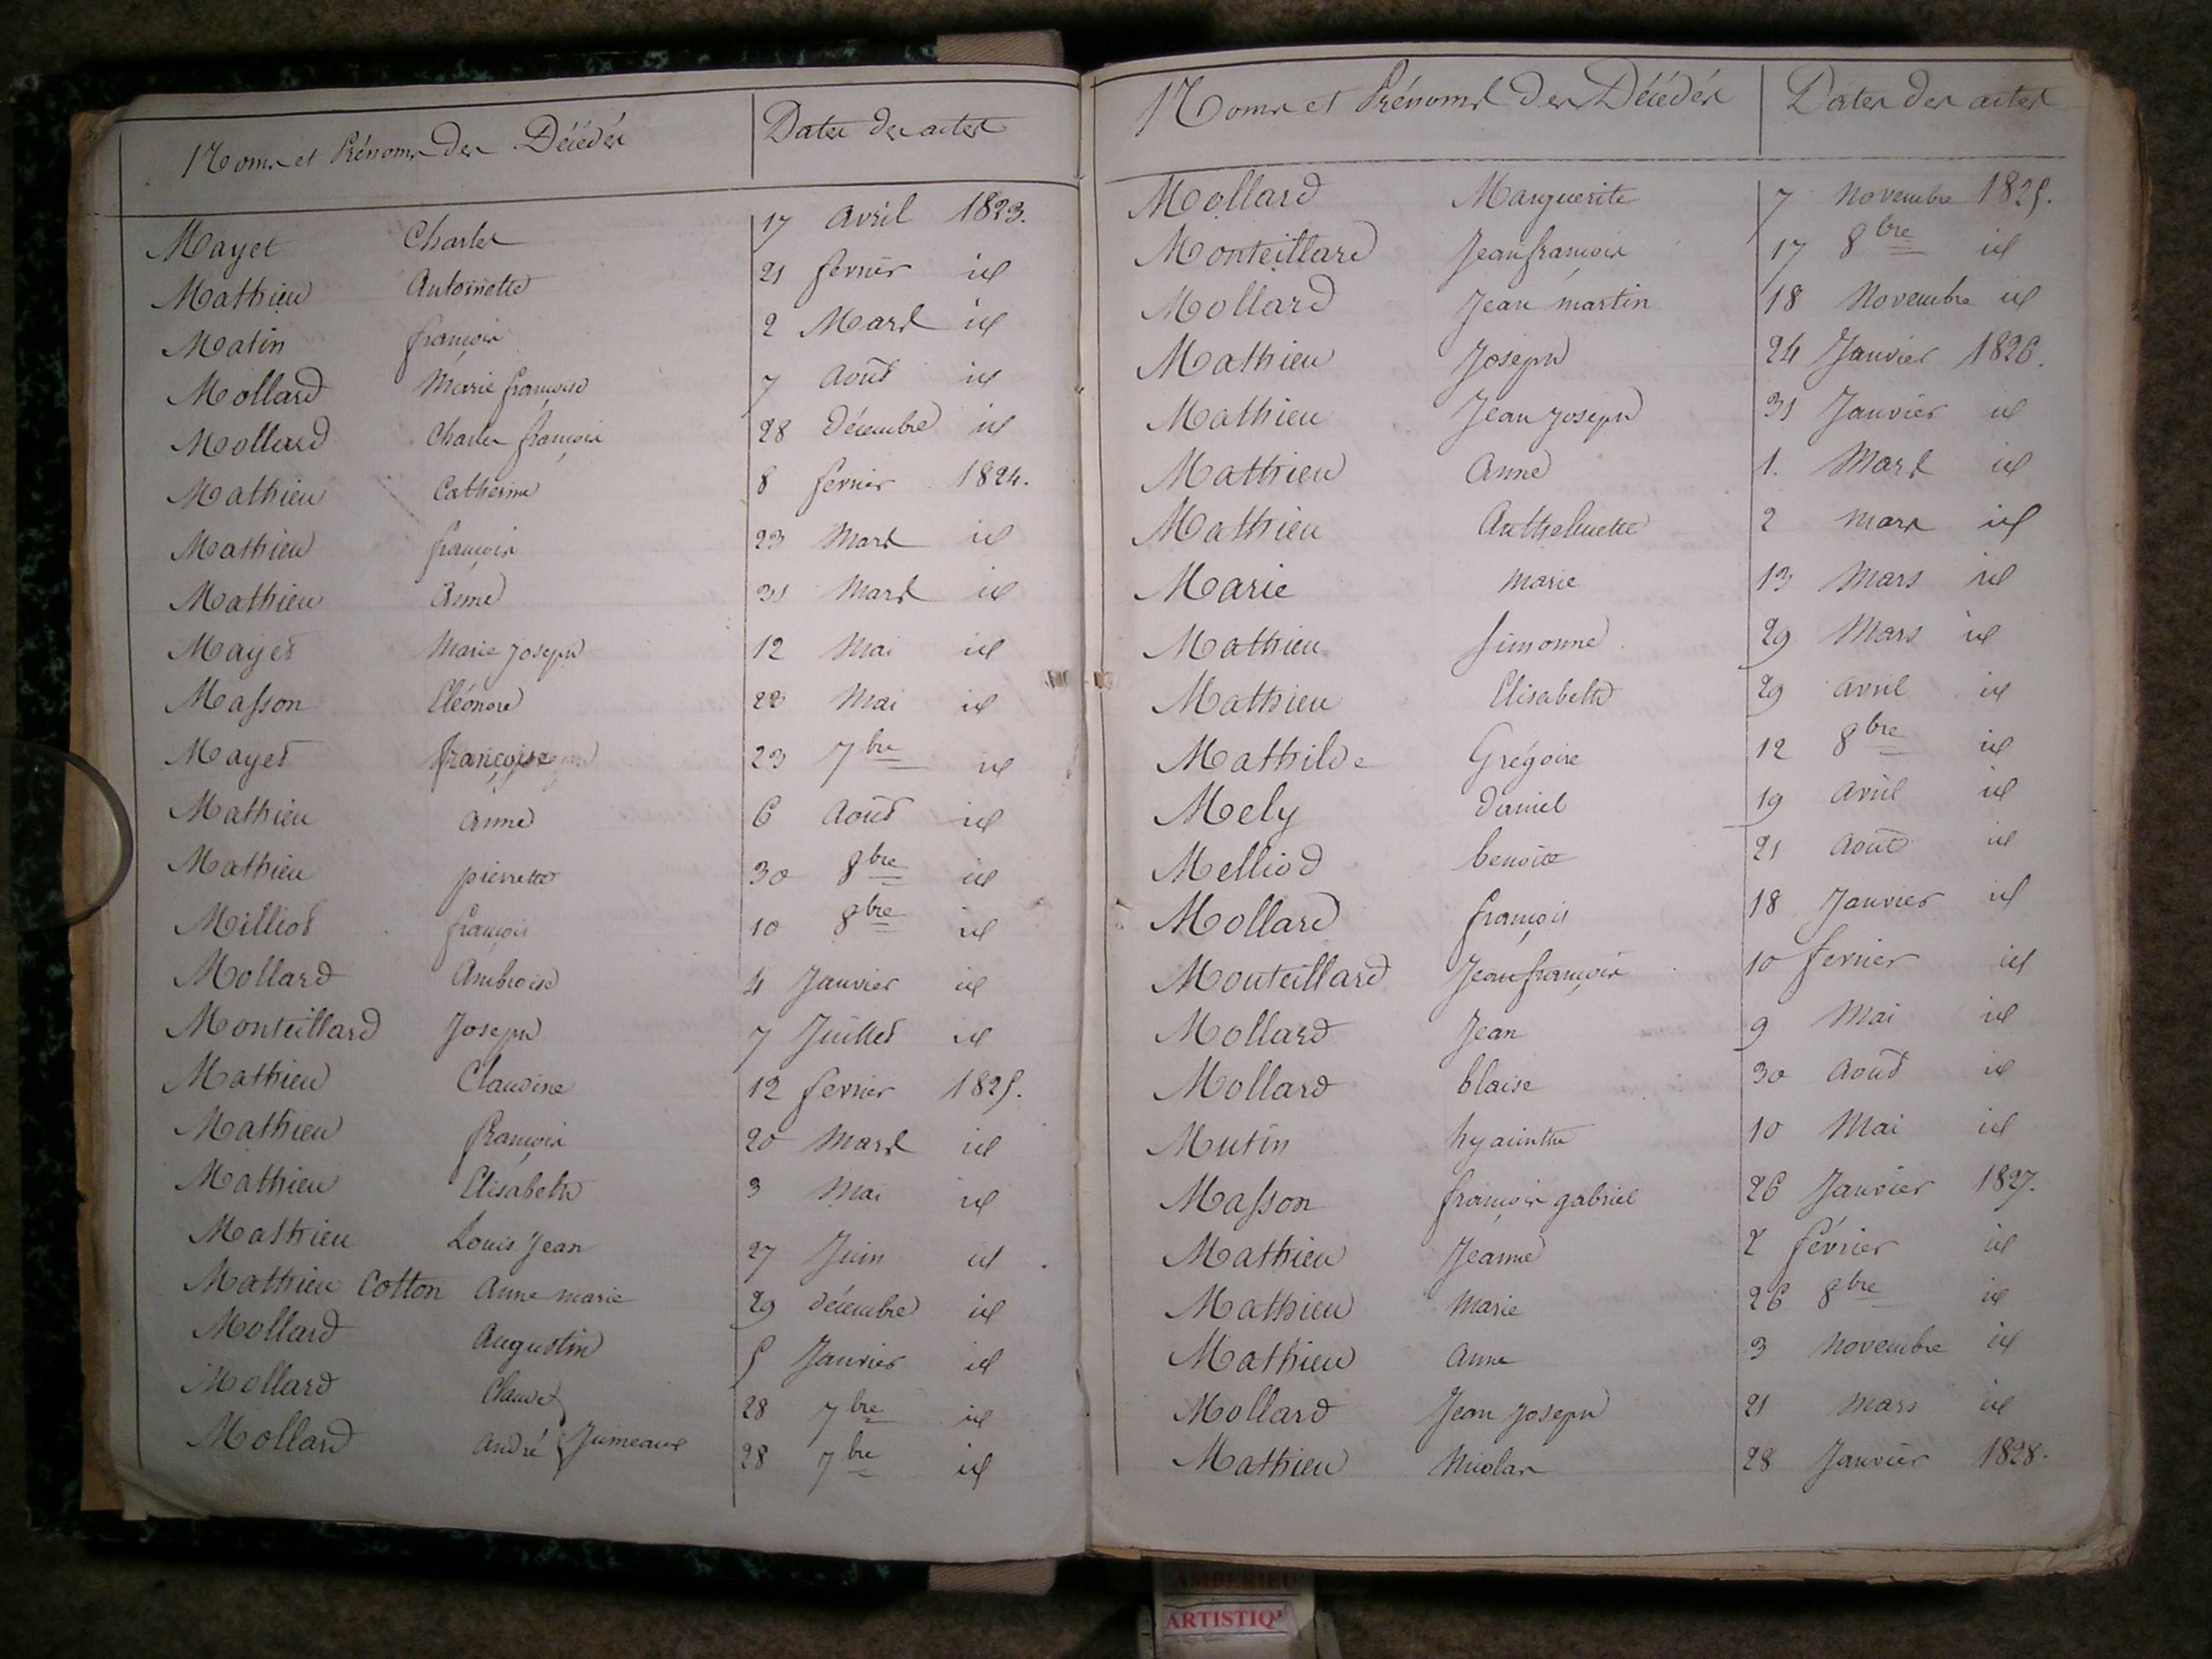 Noms et Prénoms des Décédés Dates des actes
Mayet Charles 17 avril 1823.
Mathieu Antoinette 21 fevrier id
Matin françois 2 Mars id
Mollard Marie françoise 7 Août id
Mollard Charles françois 28 Décembre id
Mathieu Catherine 8 fevrier 1824.
Mathieu françois 23 Mars id
Mathieu Anne 31 Mars id
Mayet Marie joseph 12 Mai id
Masson Eléonore 22 Mai id
Mayet françoise 23 7bre id
Mathieu anne 6 Août id
Mathieu pierrette 30 8bre id
Milliot françois 10 8bre id
Mollard Ambroise 4 Janvier id
Monteillard Joseph 7 Juillet id
Mathieu Claudine 12 fevrier 1825.
Mathieu françois 20 Mars id
Mathieu Elisabeth 3 Mai id
Mathieu Louis Jean 27 Juin id
Mathieu Cotton Anne marie 29 décembre id
Mollard Augustin 5 Janvier id
Mollard Claude 28 7bre id
Mollard André Jumeaux 28 7bre id
Noms et Prénoms des Décédés Dates des actes
Mollard Marguerite 7 Novembre 1825.
Monteillard Jean françois 17 8bre id
Mollard Jean martin 18 Novembre id
Mathieu Joseph 24 Janvier 1826.
Mathieu Jean joseph 31 Janvier id
Mathieu Anne 1. Mars id
Mathieu Anthelmette 2 mars id
Marie Marie 13 Mars id
Mathieu Simonne 29 Mars id
Mathieu Elisabeth 29 avril id
Mathilde Grégoire 12 8bre id
Mely daniel 19 avril id
Melliod benoite 21 Août id
Mollard françois 18 Janvier id
Monteillard Jean françois 10 fevrier id
Mollard Jean 9 Mai id
Mollard blaise 30 Août id
Mutin hyacinthe 10 Mai id
Masson françois gabriel 26 Janvier 1827.
Mathieu Jeanne 2 février id
Mathieu Marie 26 8bre id
Mathieu Anne 3 Novembre id
Mollard Jean joseph 21 Mars id
Mathieu Nicolas 28 Janvier 1828.
AMBERIEU
ARTISTIQ